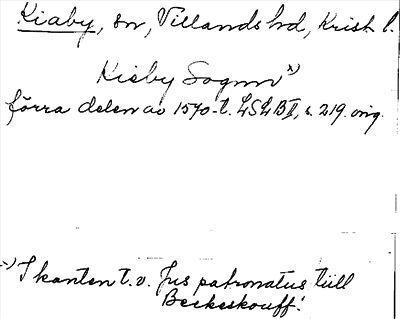 Kiaby, sn, Villands hd, Krist. l.
Kieby Sognn x)
förra delen av 1570-t. LSLB II, s. 219. orig.
x) I kanten t.v. Jus patronatus tiill
Beckeskouff!